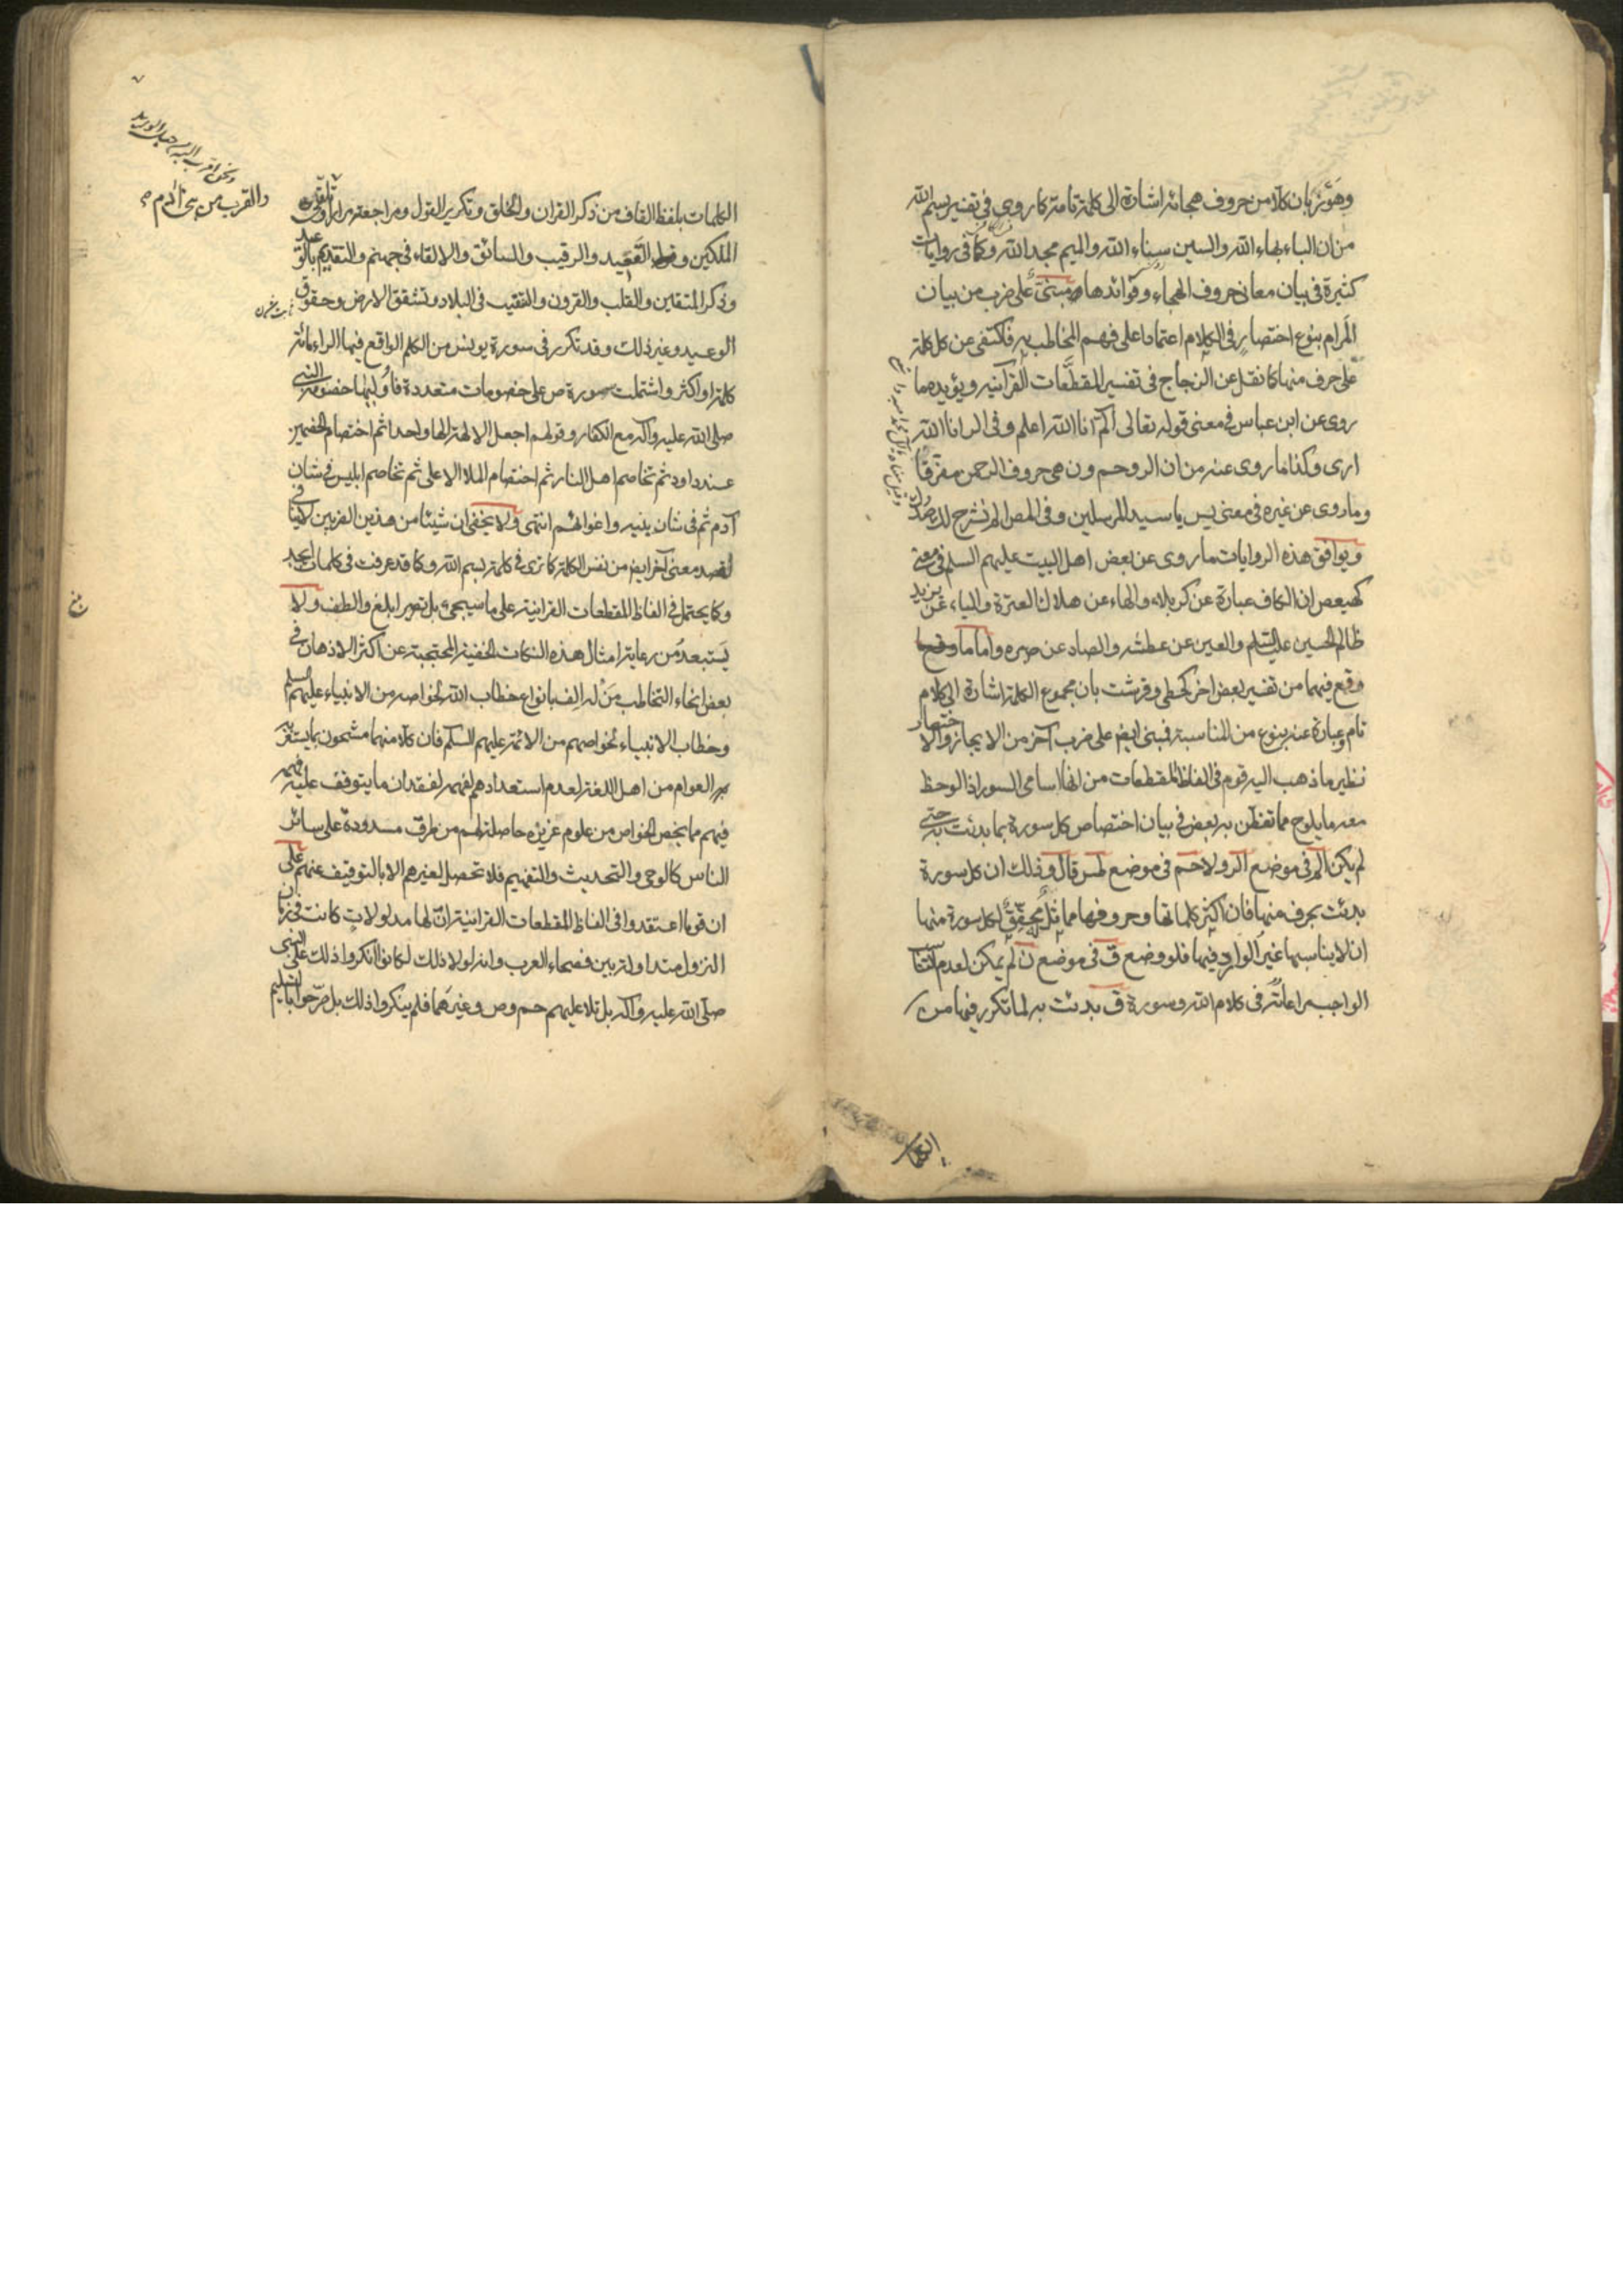 وهَوَّز بان كلا من حروف هجائه اشارة الى كلمة تامة كما روى فى تفسير بسم الله
من ان الباء بهاء الله والسين سناء الله والميم مجد الله وكما فى روايات
كثيرة فى بيان معانى حروف الهجاء وفوائدها مبتنى على ضرب من بيان
المرام بنوع اختصار فى الكلام اعتمادا على فهم المخاطب به فاكتفى عن كل كلمة
على حرف منها كما نقل عن الزجاج فى تفسير المقطعات القرآنية ويؤيده ما
روى عن ابن عباس فى معنى قوله تعالى الم انا الله اعلم وفى الر انا الله
ارى وكذا ما روى عنه من ان الر وحم ون هى حروف الرحمن مفرقا
وما روى عن غيره فى معنى يس يا سيد المرسلين وفى المص الم نشرح لك صدرك
ويوافق هذه الروايات ما روى عن بعض اهل البيت عليهم السلم فى معنى
كهيعص ان الكاف عبارة عن كربلاء والهاء عن هلاك العترة والياء عن يزيد
ظالم الحسين عليه السلم والعين عن عطشه والصاد عن صبره واما ما
وقع فيهما من تفسير بعض اخر كحطى وقرشت بان مجموع الكلمة اشارة الى كلام
تام وعبارة عنه بنوع من المناسبة فمبنى ايض على ضرب آخر من الايجاز والاختصار
نظير ما ذهب اليه قوم فى الفاظ المقطعات من انها اسامى السور اذا لوحظ
معه ما يلوح مما تفطن به بعض فى بيان اختصاص كل سورة بما بدئت به حتى
لم يكن الم فى موضع الر ولا حم فى موضع طس قال وذلك ان كل سورة
بدئت بحرف منها فان اكثر كلماتها وحروفها مماثل له فحق لكل سورة منها
ان لا يناسبها غير الوارد فيها فلو وضع ق فى موضع ن لم يمكن لعدم التناسب
الواجب مراعاته فى كلام الله وسورة ق بدئت به لما تكرر فيها من
الكلمات بلفظ القاف من ذكر القرآن والخلق وتكرير القول ومراجعته مرارا وتلقى
الملكين وقول القعيد والرقيب والسائق والالقاء فى جهنم والتقديم بالوعيد
وذكر المتقين والقلب والقرون والتنقيب فى البلاد وتشقق الارض وحقوق
الوعيد وغير ذلك وقد تكرر فى سورة يونس من الكلم الواقع فيها الراء مائة
كلمة او اكثر واشتملت سورة ص على خصومات متعددة فاولها خصومة النبى
صلى الله عليه وآله مع الكفار وقولهم اجعل الالهة الها واحدا ثم اختصام الخصمين
عند داود ثم تخاصم اهل النار ثم اختصام الملا الاعلى ثم تخاصم ابليس فى شان
آدم ثم فى شان بنيه واغوائهم انتهى ولا يخفى ان شيئا من هذين الضربين لا ينافى
لقصد معنى آخر ايض من نفس الكلمة كما ترى فى كلمة بسم الله وكما قد عرفت فى كلمات ابجد
وكما يحتمل فى الفاظ المقطعات القرانية على ما سيجىء بل تصير ابلغ والطف ولا
يستبعد من رعاية امثال هذه النكات الخفية المحتجبة عن اكثر الاذهان فى
بعض انحاء التخاطب من له الف بانواع خطاب الله لخواصه من الانبياء عليهم السلم
وخطاب الانبياء لخواصهم من الائمة عليهم السلم فان كلا منهما مشحون بما يستغرب
به العوام من اهل اللغة لعدم استعدادهم لفهمه لفقدان ما يتوقف عليه فهمه
فيهم مما يخص الخواص من علوم غزيرة حاصلة لهم من طرق مسدودة على سائر
الناس كالوحى والتحديث والتفهيم فلا تحصل لغيرهم الا بالتوقيف عنهم على
ان قوما اعتقدوا فى الفاظ المقطعات القرانية ان لها مدلولات كانت فى زمان
النزول متداولة بين فصحاء العرب وانه لولا ذلك لكانوا انكروا ذلك على النبى
صلى الله عليه وآله بل تلا عليهم حم وص وغيرهما فلم ينكروا ذلك بل صرحوا بالتسليم
ونحن اقرب اليه من حبل الوريد
والقرب من بنى آدم